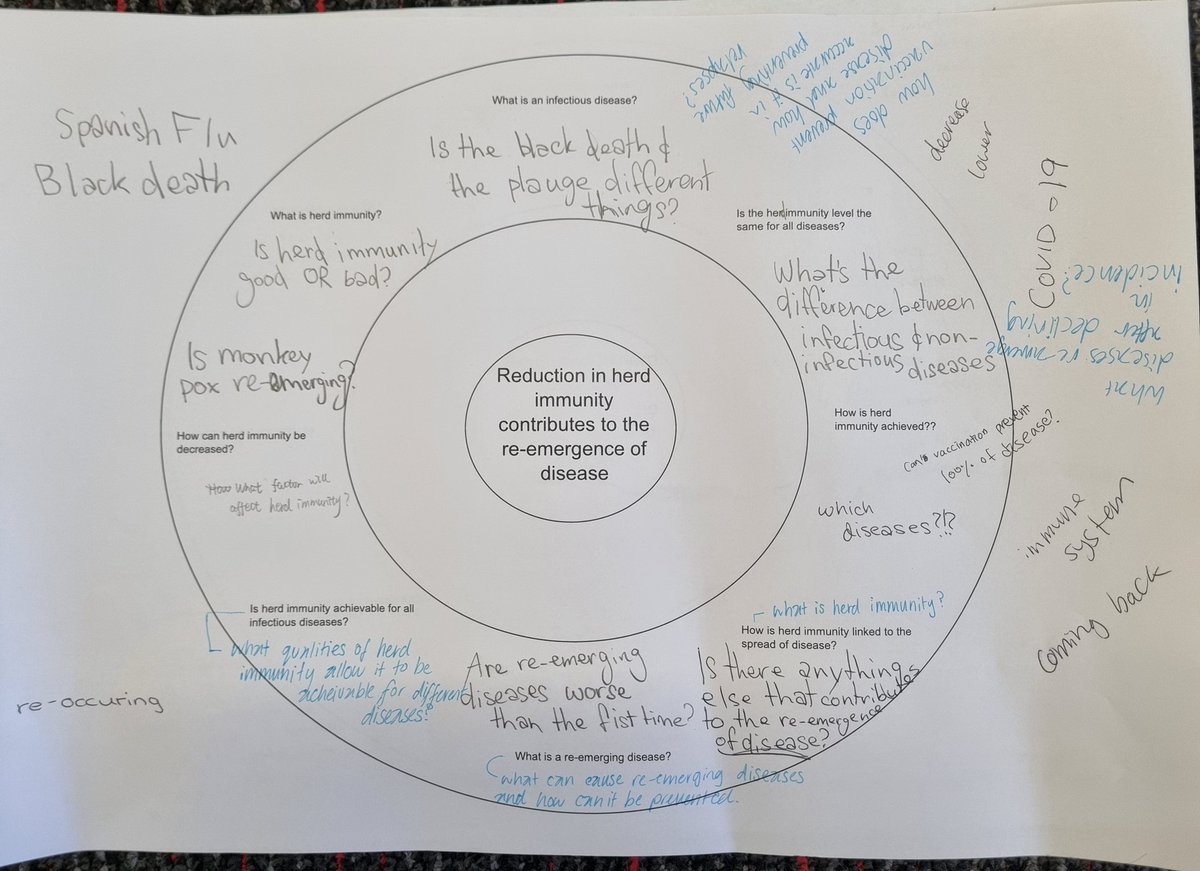 Spanish Flu
Black death
What is an infectious disease?
Is the black death &
the plauge different
things?
how does
vaccination prevent
disease and how
accurate is it in
preventing future
relapses?
decrease
lower
COVID-19
What is herd immunity?
Is herd immunity
good OR bad?
Is the herd immunity level the
same for all diseases?
What's the
difference between
infectious & non-
infectious diseases
what
diseases re-immerge
after declining
in
incidence?
Is monkey
pox re-emerging?
Reduction in herd
immunity
contributes to the
re-emergence of
disease
How is herd
immunity achieved??
vaccination prevent
100% of disease?
How can herd immunity be
decreased?
What factor will
affect herd immunity?
which
diseases?!?
immune
system
coming back
Is herd immunity achievable for all
infectious diseases?
what qualities of herd
immunity allow it to be
acheivable for different
diseases?
what is herd immunity?
How is herd immunity linked to the
spread of disease?
Is there anything
else that contributes
to the re-emergence
of disease?
Are re-emerging
diseases worse
than the fist time?
re-occuring
What is a re-emerging disease?
what can cause re-emerging diseases
and how can it be prevented.